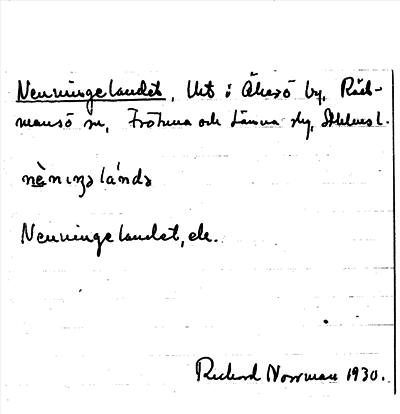 Nenningelandet, Urt i Åkerö by, Råd-
mansö sn, Frötuna och Länna skg, Sthlms l.
nènıŋəlándə
Nenningelandet, ele.
Richard Norrman 1930.